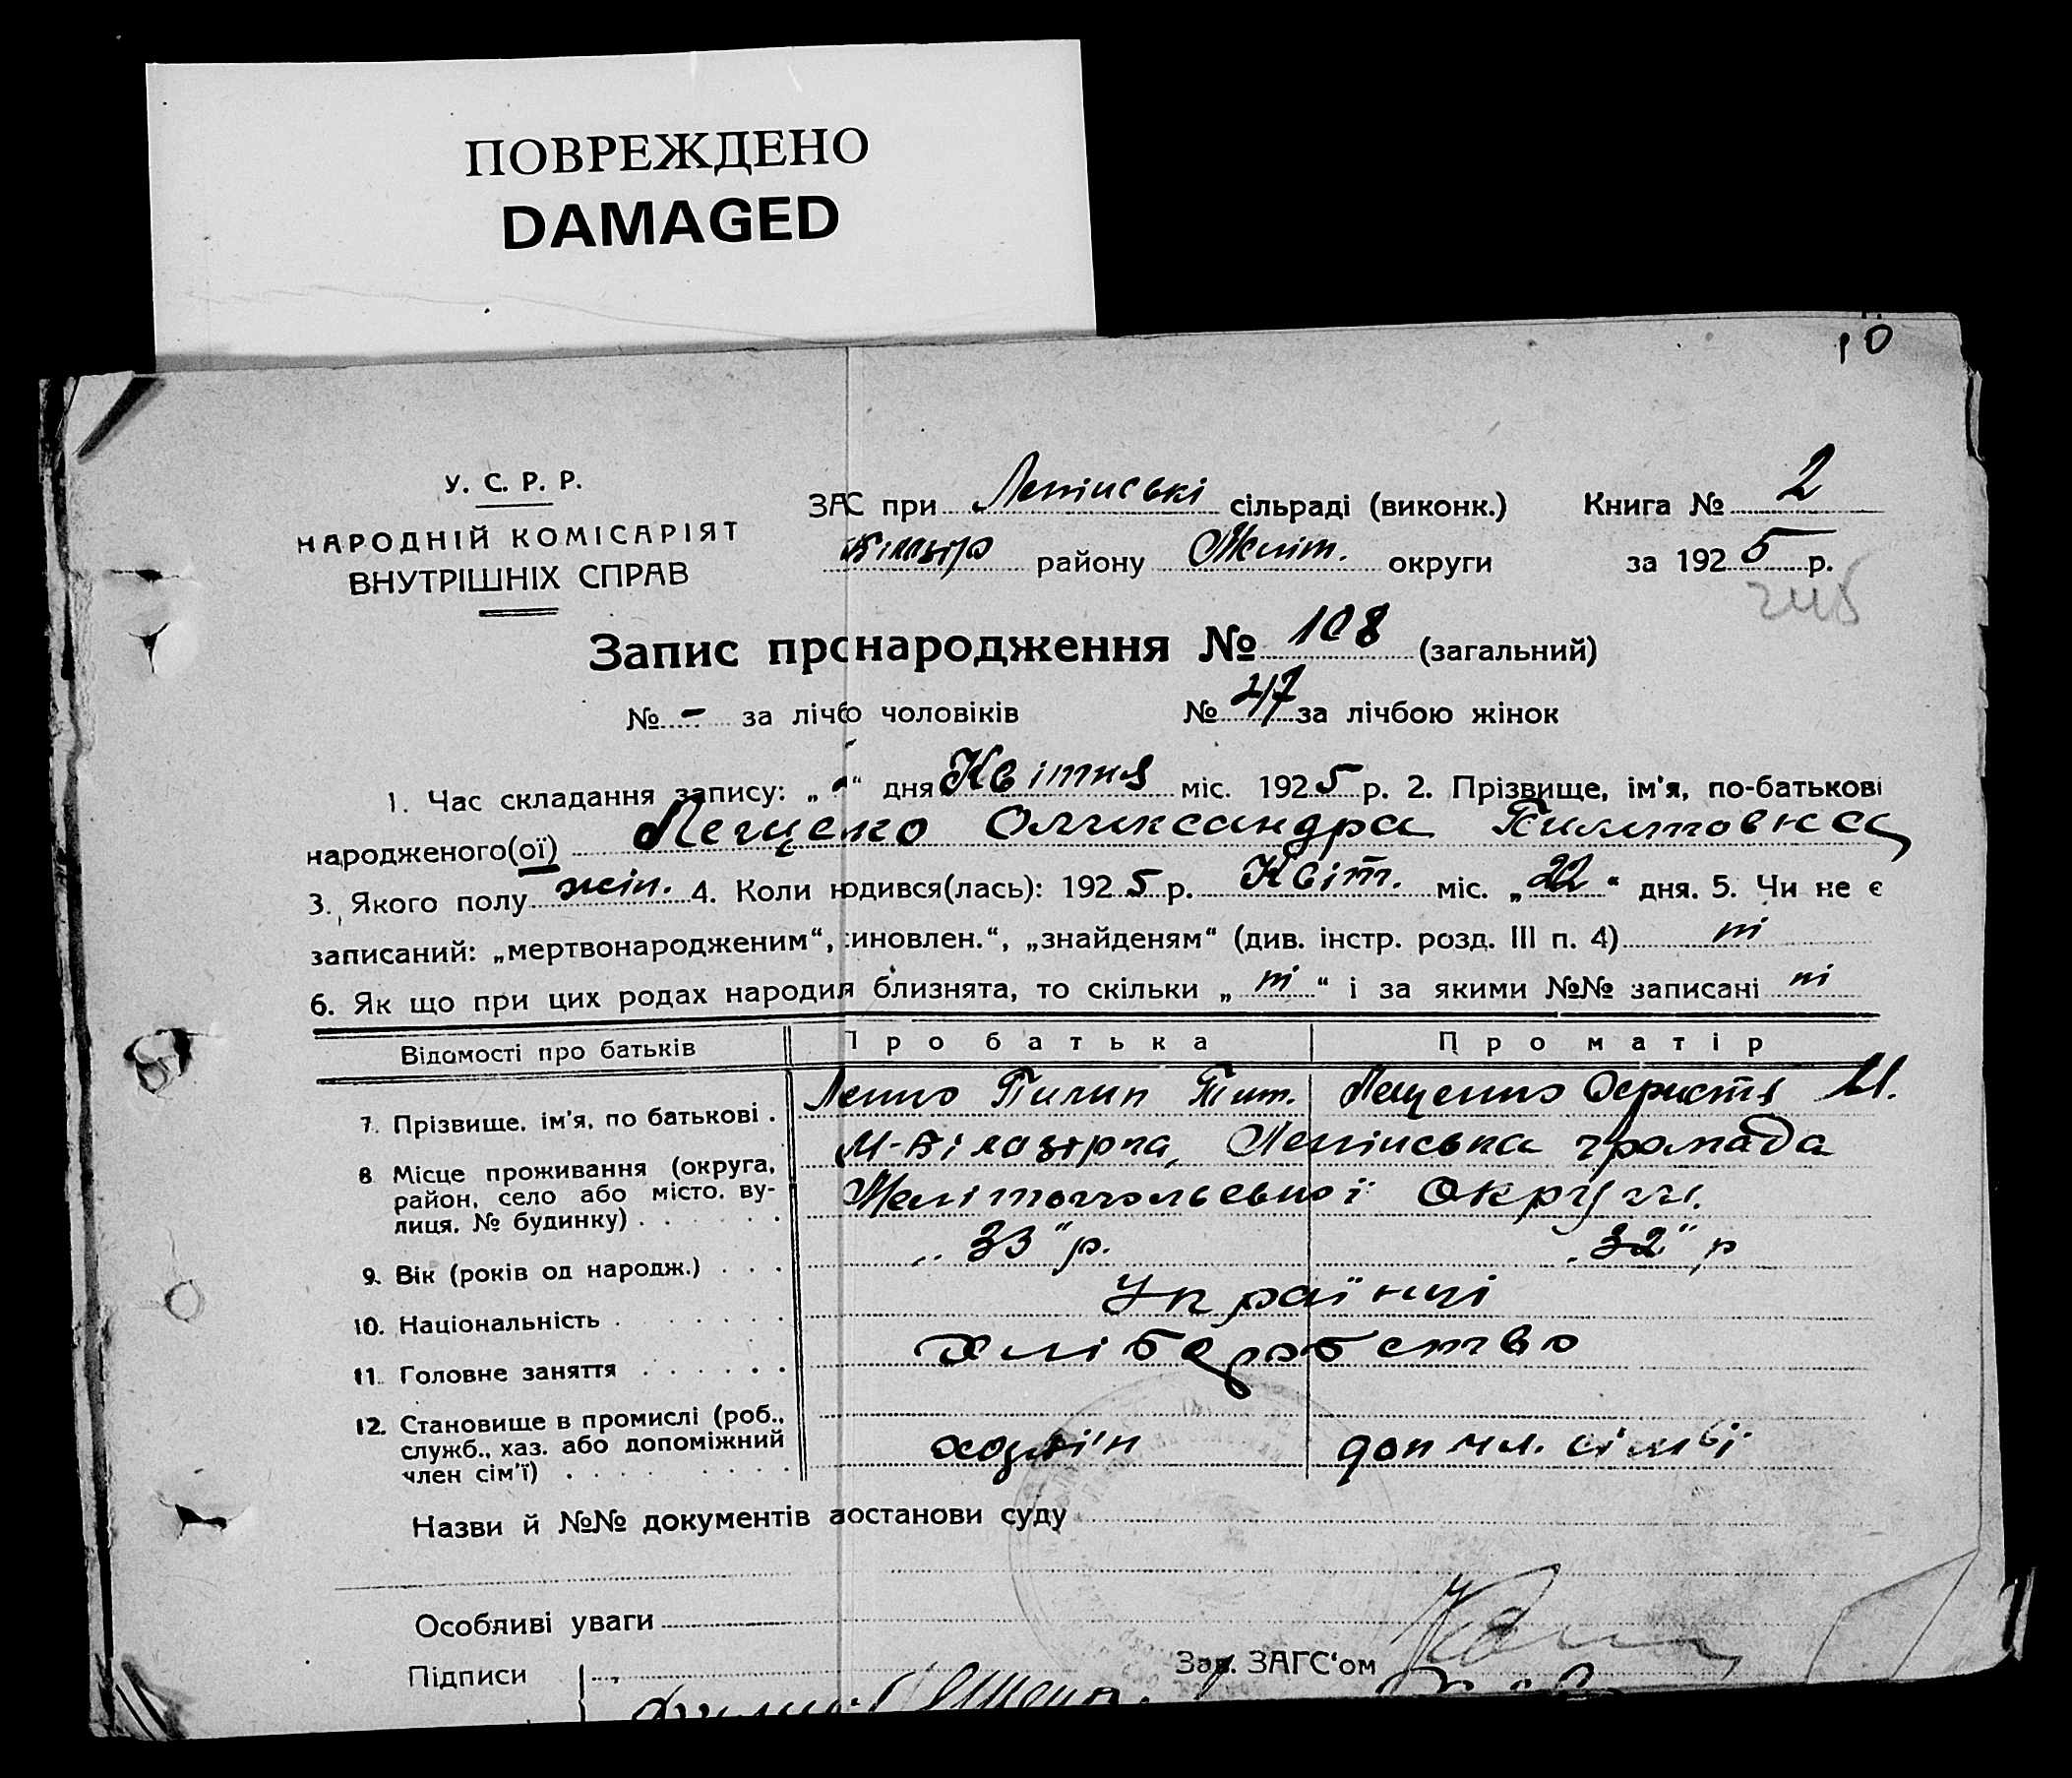 ПОВРЕЖДЕНО
DAMAGED
10
У. С. Р. Р.
НАРОДНІЙ КОМІСАРІЯТ
ВНУТРІШНІХ СПРАВ
ЗАС при Ленінські сільраді (виконк.)
Книга № 2
району Меліт. округи
за 1925 р.
245
Запис про народження № 108 (загальний)
№ - за лічбо чоловіків № 47 за лічбою жінок
1. Час складання запису: „ “ дня Квітня міс. 1925 р. 2. Прізвище, ім'я, по-батькові
народженого(ої) Лещенко Олександра
3. Якого полу жін. 4. Коли родився(лась): 1925 р. Квіт. міс. „22“ дня. 5. Чи не є
записаний: „мертвонародженим“, синовлен.“, „знайденям“ (див. інстр. розд. III п. 4) ні
6. Як що при цих родах народил близнята, то скільки „ні“ і за якими №№ записані ні
Відомості про батьків
Про батька
Про матір
7. Прізвище, ім'я, по батькові . Пилип Тит. Лещенко М.
8 Місце проживання (округа, район, село або місто, вулиця, № будинку) . . . . . .
М-Білозірка, Ленінська громада
Мелітопольської Округи.
9. Вік (років од народж.) . . . „33" р. „32" р
10. Національність . . . . . . . Українці
11. Головне заняття . . . . . . Хліборобство
12. Становище в промислі (роб.,
служб., хаз. або допоміжний
член сім'ї) . . . . . . . . .
хозяїн доп чл. сімьї
Назви й №№ документів постанови суду
Особливі уваги
Підписи
Зав. ЗАГС'ом